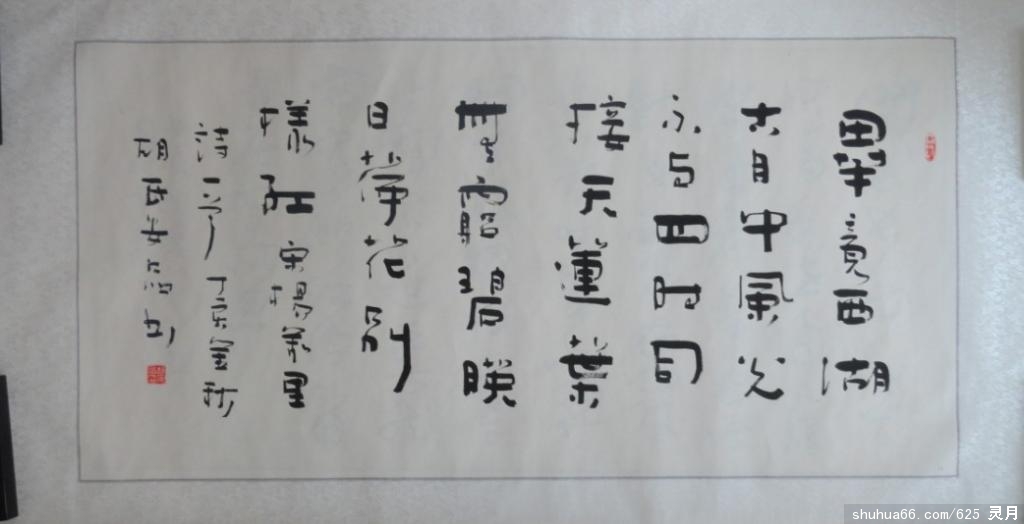 畢竟西湖
六月中風光
不与四时同
接天蓮葉
無窮碧映
日荷花别
樣紅 宋楊萬里
詩一首
shuhua66.com/625 灵月